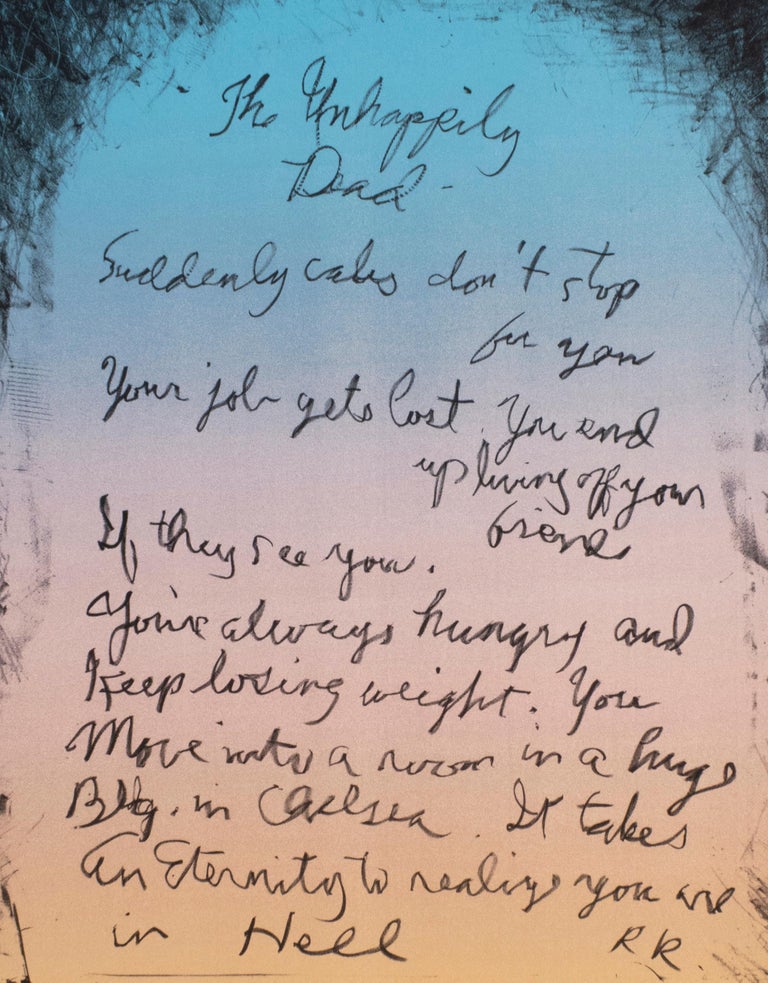 The Unhappily
Dead -
Suddenly cabs don't stop
for you
Your job gets lost. You end
up living off your
friend
If they see you.
You're always hungry and
Keep losing weight. You
Move into a room in a huge
Bldg. in Chelsea. It takes
An Eternity to realize you are
in Hell RR.